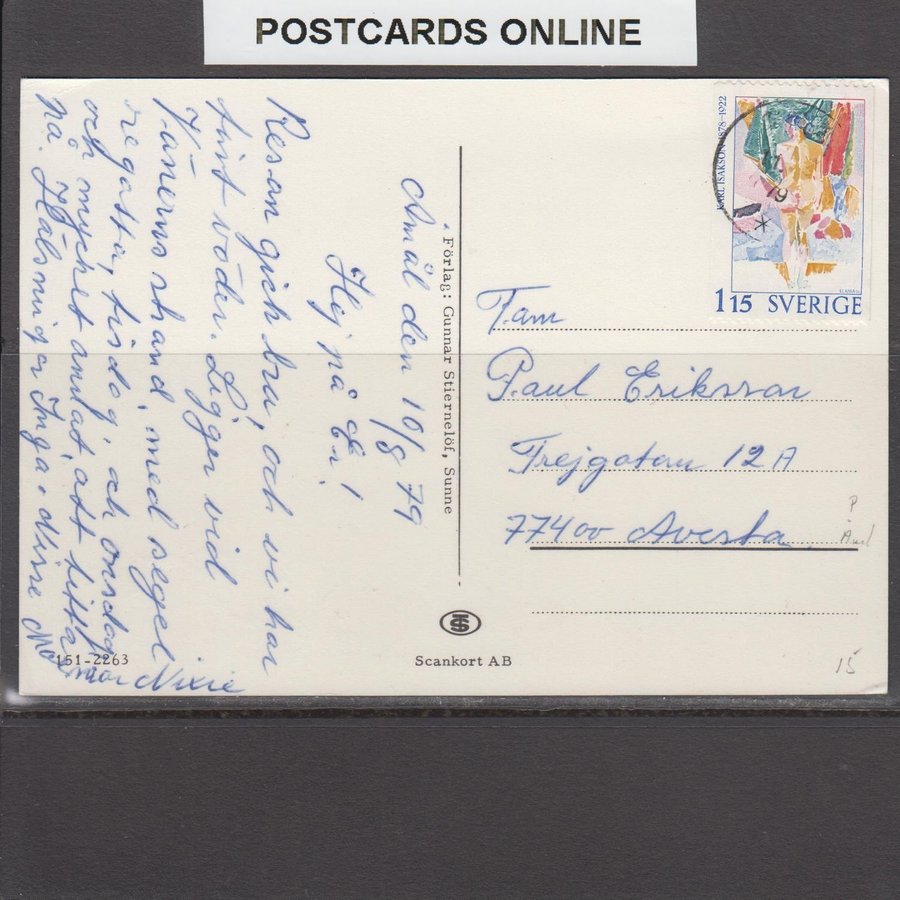 POSTCARDS ONLINE
Åmål den 10/8 79
Hej på Er!
Resan gick bra, och vi har
fint väder. Ligger vid
Vänerns strand, med segel
regatta, tisdag, och onsdag
och mycket annat att titta
på. Hälsningar Inga. Nisse
Mormor Nixie
151-2263
Förlag: Gunnar Stiernelöf, Sunne
Scankort AB
KARL ISAKSON 1878-1922
115 SVERIGE
79
Fam
Paul Eriksson
Trejgatan 12A
77400 Avesta
P
15